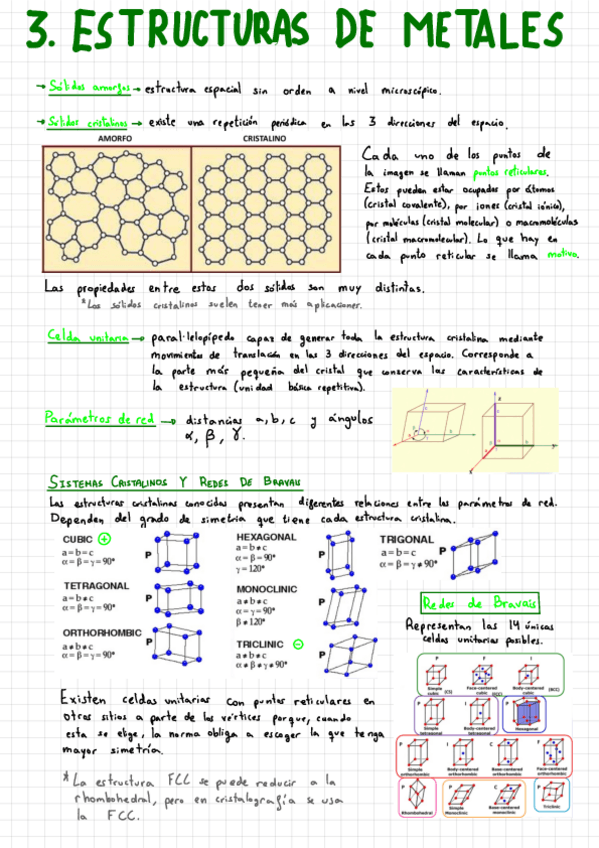 3. ESTRUCTURAS DE METALES
→ Sólidos amorfos → estructura espacial sin orden a nivel microscópico.
→ Sólidos cristalinos → existe una repetición periódica en las 3 direcciones del espacio.
AMORFO
CRISTALINO
Cada uno de los puntos de
la imagen se llaman puntos reticulares.
Estos pueden estar ocupados por átomos
(cristal covalente), por iones (cristal iónico),
por moléculas (cristal molecular) o macromoléculas
(cristal macromolecular). Lo que hay en
cada punto reticular se llama motivo.
Las propiedades entre estos dos sólidos son muy distintas.
*Los sólidos cristalinos suelen tener más aplicaciones.
Celda unitaria → paralelepípedo capaz de generar toda la estructura cristalina mediante
movimientos de translación en las 3 direcciones del espacio. Corresponde a
la parte más pequeña del cristal que conserva las características de
la estructura (unidad básica repetitiva).
Parámetros de red → distancias a, b, c y ángulos
α, β, γ.
SISTEMAS CRISTALINOS Y REDES DE BRAVAIS
Las estructuras cristalinas conocidas presentan diferentes relaciones entre los parámetros de red.
Dependen del grado de simetría que tiene cada estructura cristalina.
CUBIC +
a = b = c
α = β = γ = 90°
P
HEXAGONAL
a = b ≠ c
α = β = 90°
γ = 120°
P
TRIGONAL
a = b = c
α = β = γ ≠ 90°
P
TETRAGONAL
a = b ≠ c
α = β = γ = 90°
P
MONOCLINIC
a ≠ b ≠ c
α = γ = 90°
β ≠ 120°
P
ORTHORHOMBIC
a ≠ b ≠ c
α = β = γ = 90°
P
TRICLINIC −
a ≠ b ≠ c
α ≠ β ≠ γ ≠ 90°
P
Redes de Bravais
Representan las 14 únicas
celdas unitarias posibles.
P F I
Simple cubic (CS)
Face-centered cubic (FCC)
Body-centered cubic (BCC)
P I P
Simple tetragonal
Body-centered tetragonal
Hexagonal
P I C F
Simple orthorhombic
Body-centered orthorhombic
Base-centered orthorhombic
Face-centered orthorhombic
P P C P
Rhombohedral
Simple Monoclinic
Base-centered monoclinic
Triclinic
Existen celdas unitarias con puntos reticulares en
otros sitios a parte de los vértices porque, cuando
esta se elige, la norma obliga a escoger la que tenga
mayor simetría.
* La estructura FCC se puede reducir a la
rhombohedral, pero en cristalografía se usa
la FCC.